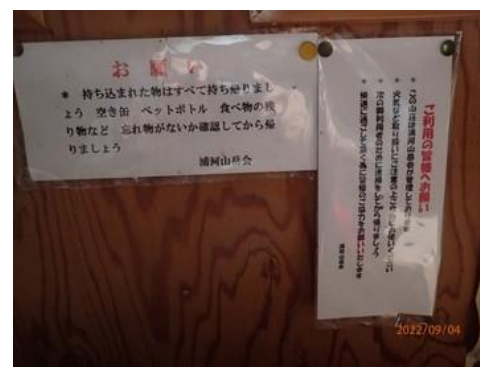 お願い
＊ 持ち込まれた物はすべて持ち帰りまし
ょう 空き缶 ペットボトル 食べ物の残
り物など 忘れ物がないか確認してから帰
りましょう
浦河山岳会
ご利用の皆様へお願い
＊ この山小屋は浦河山岳会が管理しております
＊ 火気など取り扱いにご注意の上
＊ 次の御利用者のために清掃をしてから帰りましょう
＊ 快適に過ごして頂く為に皆様のご協力をお願いいたします
浦河山岳会
2022/09/04